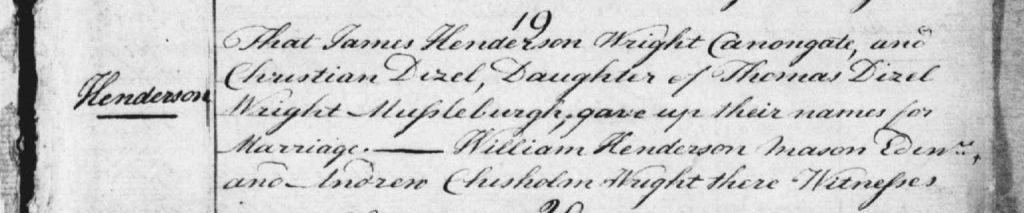 19
That James Henderson Wright Canongate, and
Christian Dizel, Daughter of Thomas Dizel
Henderson
Wright Mussleburgh, gave up their names for
Marriage. — William Henderson Mason Edinr.,
and Andrew Chisholm Wright there Witnesses